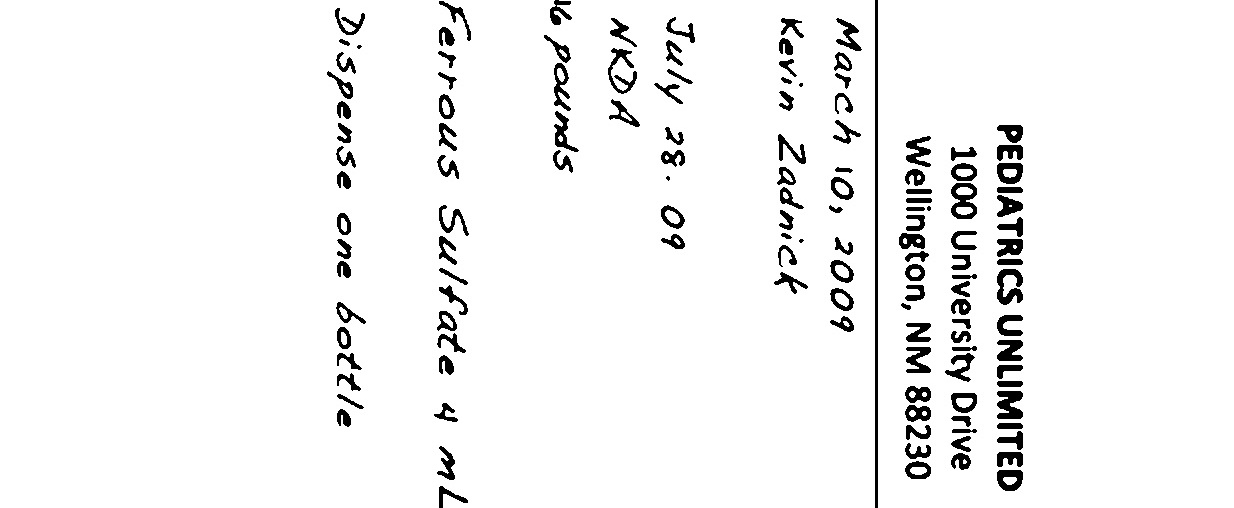 PEDIATRICS UNLIMITED
1000 University Drive
Wellington, NM 88230
March 10, 2009
Kevin Zadnick
July 28. 09
NKDA
16 pounds
Ferrous Sulfate 4 mL
Dispense one bottle